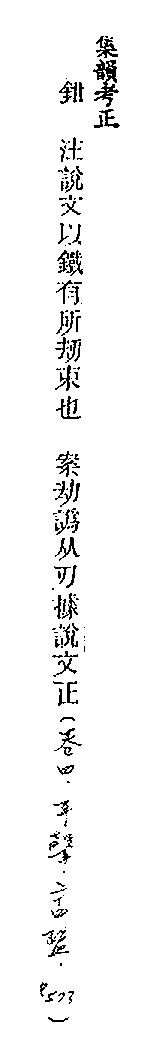 集韻考正
鉗　注說文以鐵有所劫束也　案劫譌从刃據說文正（卷四·平聲·二十四鹽·P503）